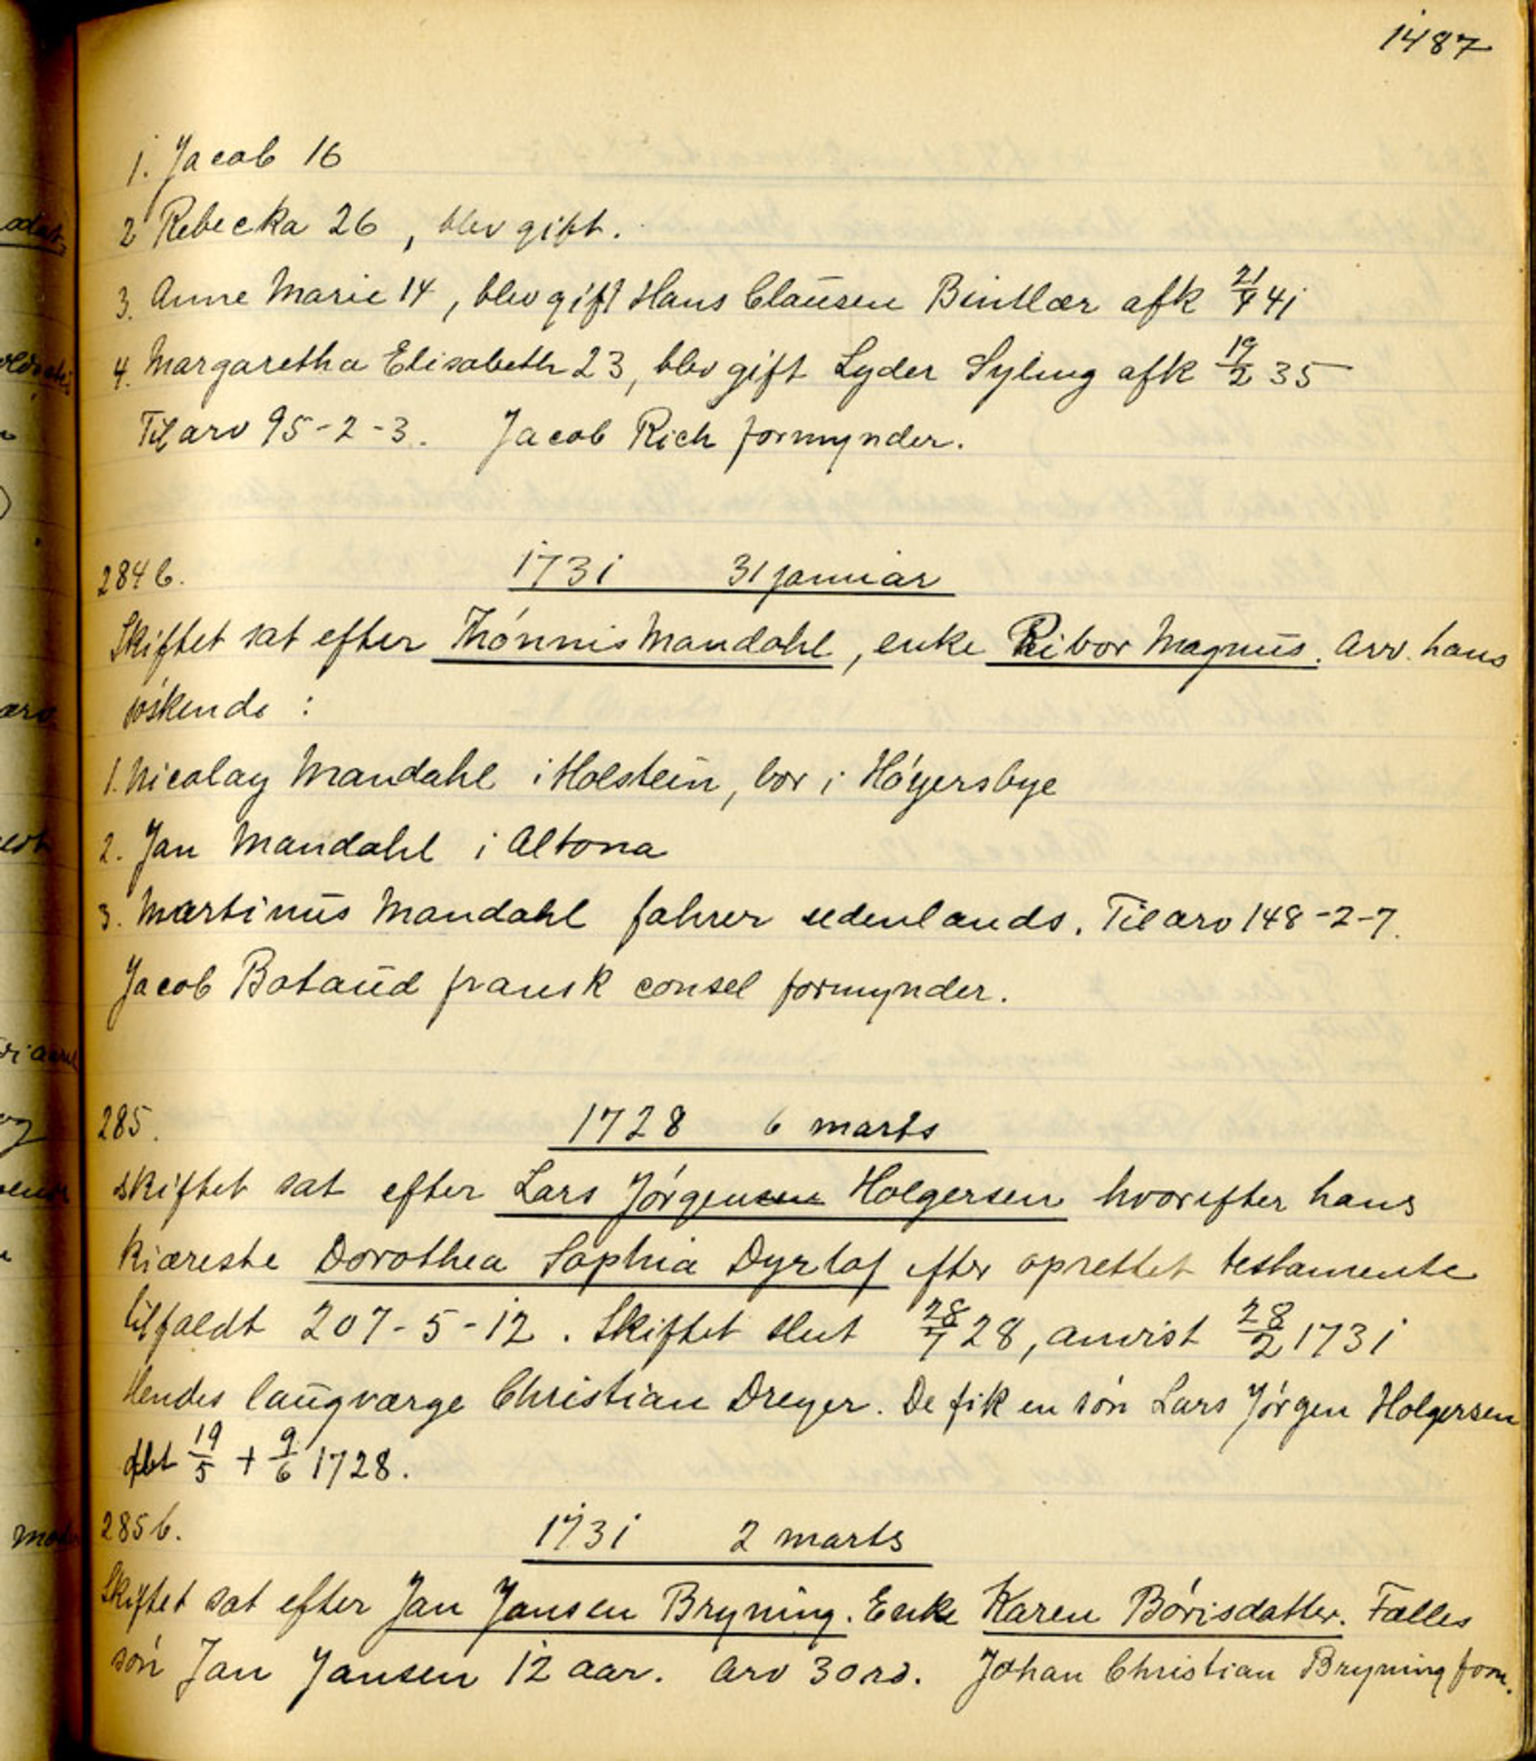 1487
1. Jacob 16
2 Rebecka 26, blev gift.
3. Anne Marie 14, blev gift Hans Clausen Bintlær afk 21/4 41
4. Margaretha Elisabeth 23, blev gift Lyder Syling afk 19/2 35
Til arv 95-2-3. Jacob Rich formynder.
284 b. 1731 31 januar
Skiftet sat efter Thónnis Mandahl, enke Ribor Magnus. Arv. hans
söskende :
1. Nicolay Mandahl i Holstein, bor i Hóyersbye
2. Jan Mandahl i Altona
3. Martinus Mandahl fahrer udenlands. Til arv 148-2-7.
Jacob Bataud fransk consel formynder.
285. 1728 6 marts
Skiftet sat efter Lars Jórgensen Holgersen hvorefter hans
kiæreste Dorothea Sophia Dyrlof efter oprettet testamente
tilfaldt 207-5-12. Skiftet slut 28/7 28, anvist 28/2 1731
Hendes laugværge Christian Dreyer. De fik en són Lars Jórgen Holgersen
dbt 19/5 + 9/6 1728.
285 b. 1731 2 marts
Skiftet sat efter Jan Jansen Bryning. Enke Karen Bórisdatter. Fælles
són Jan Jansen 12 aar. Arv 30 rd. Johan Christian Bryning form.